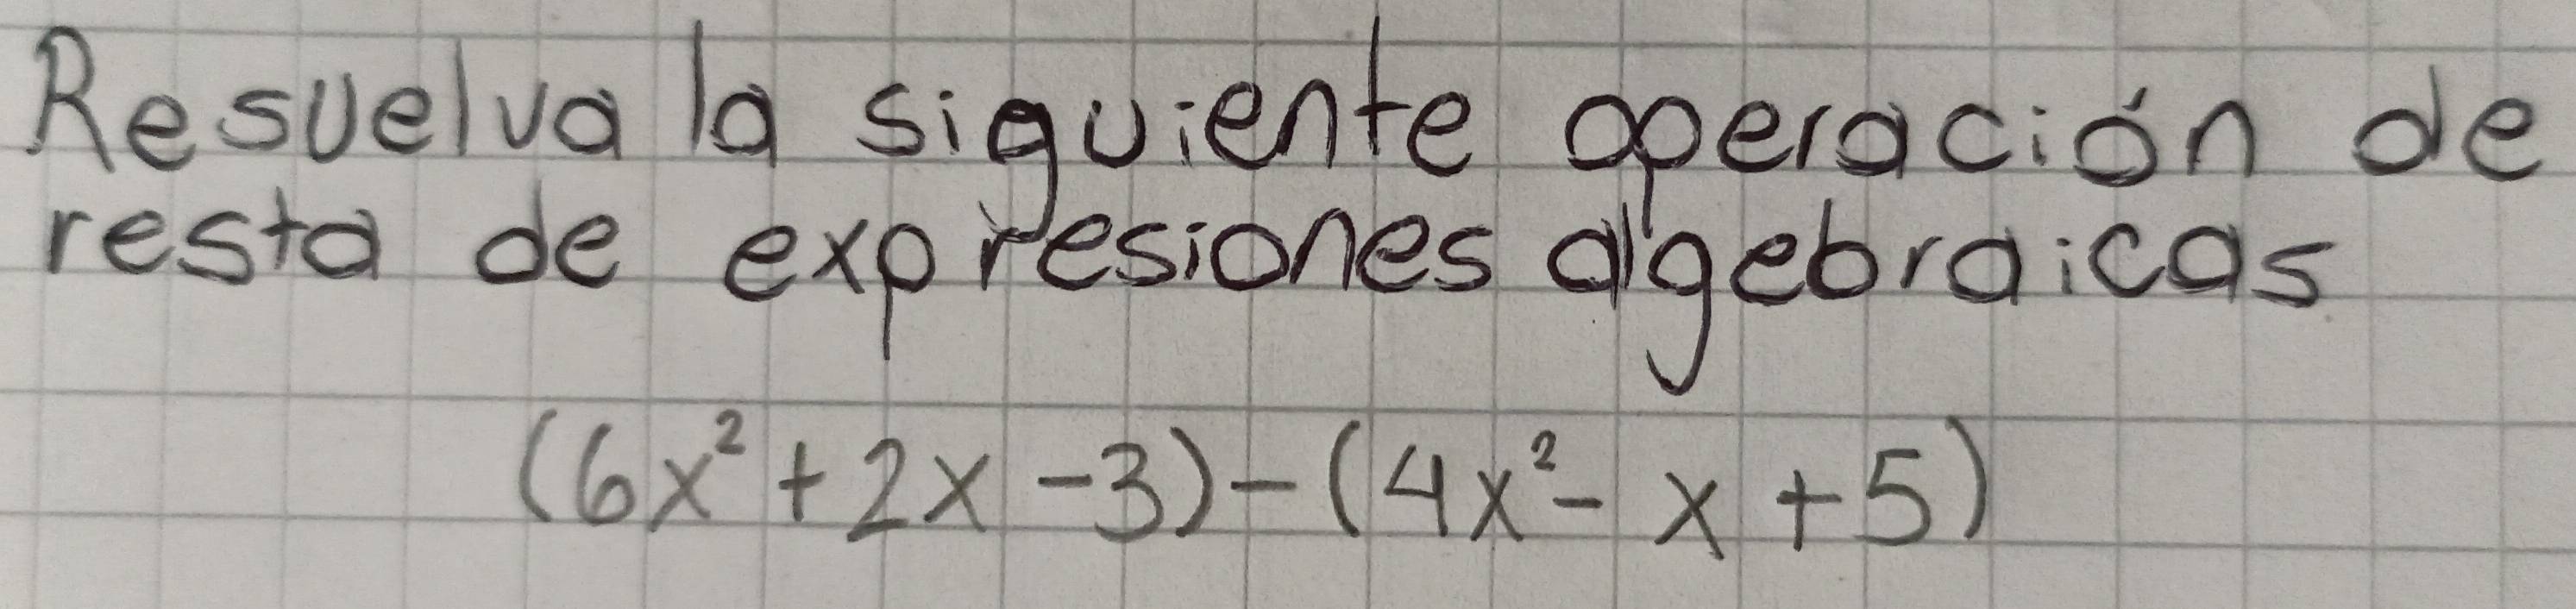 Resuelva la siguiente operación de
resta de expresiones algebraicas
(6x² + 2x - 3) - (4x² - x + 5)